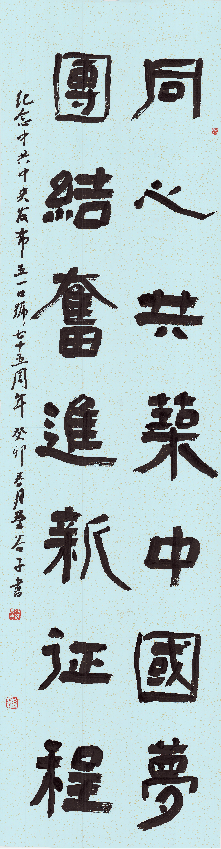 同心共築中國夢
團結奮進新征程
紀念中共中央发布五一口號七十五周年癸卯春月墨谷子書